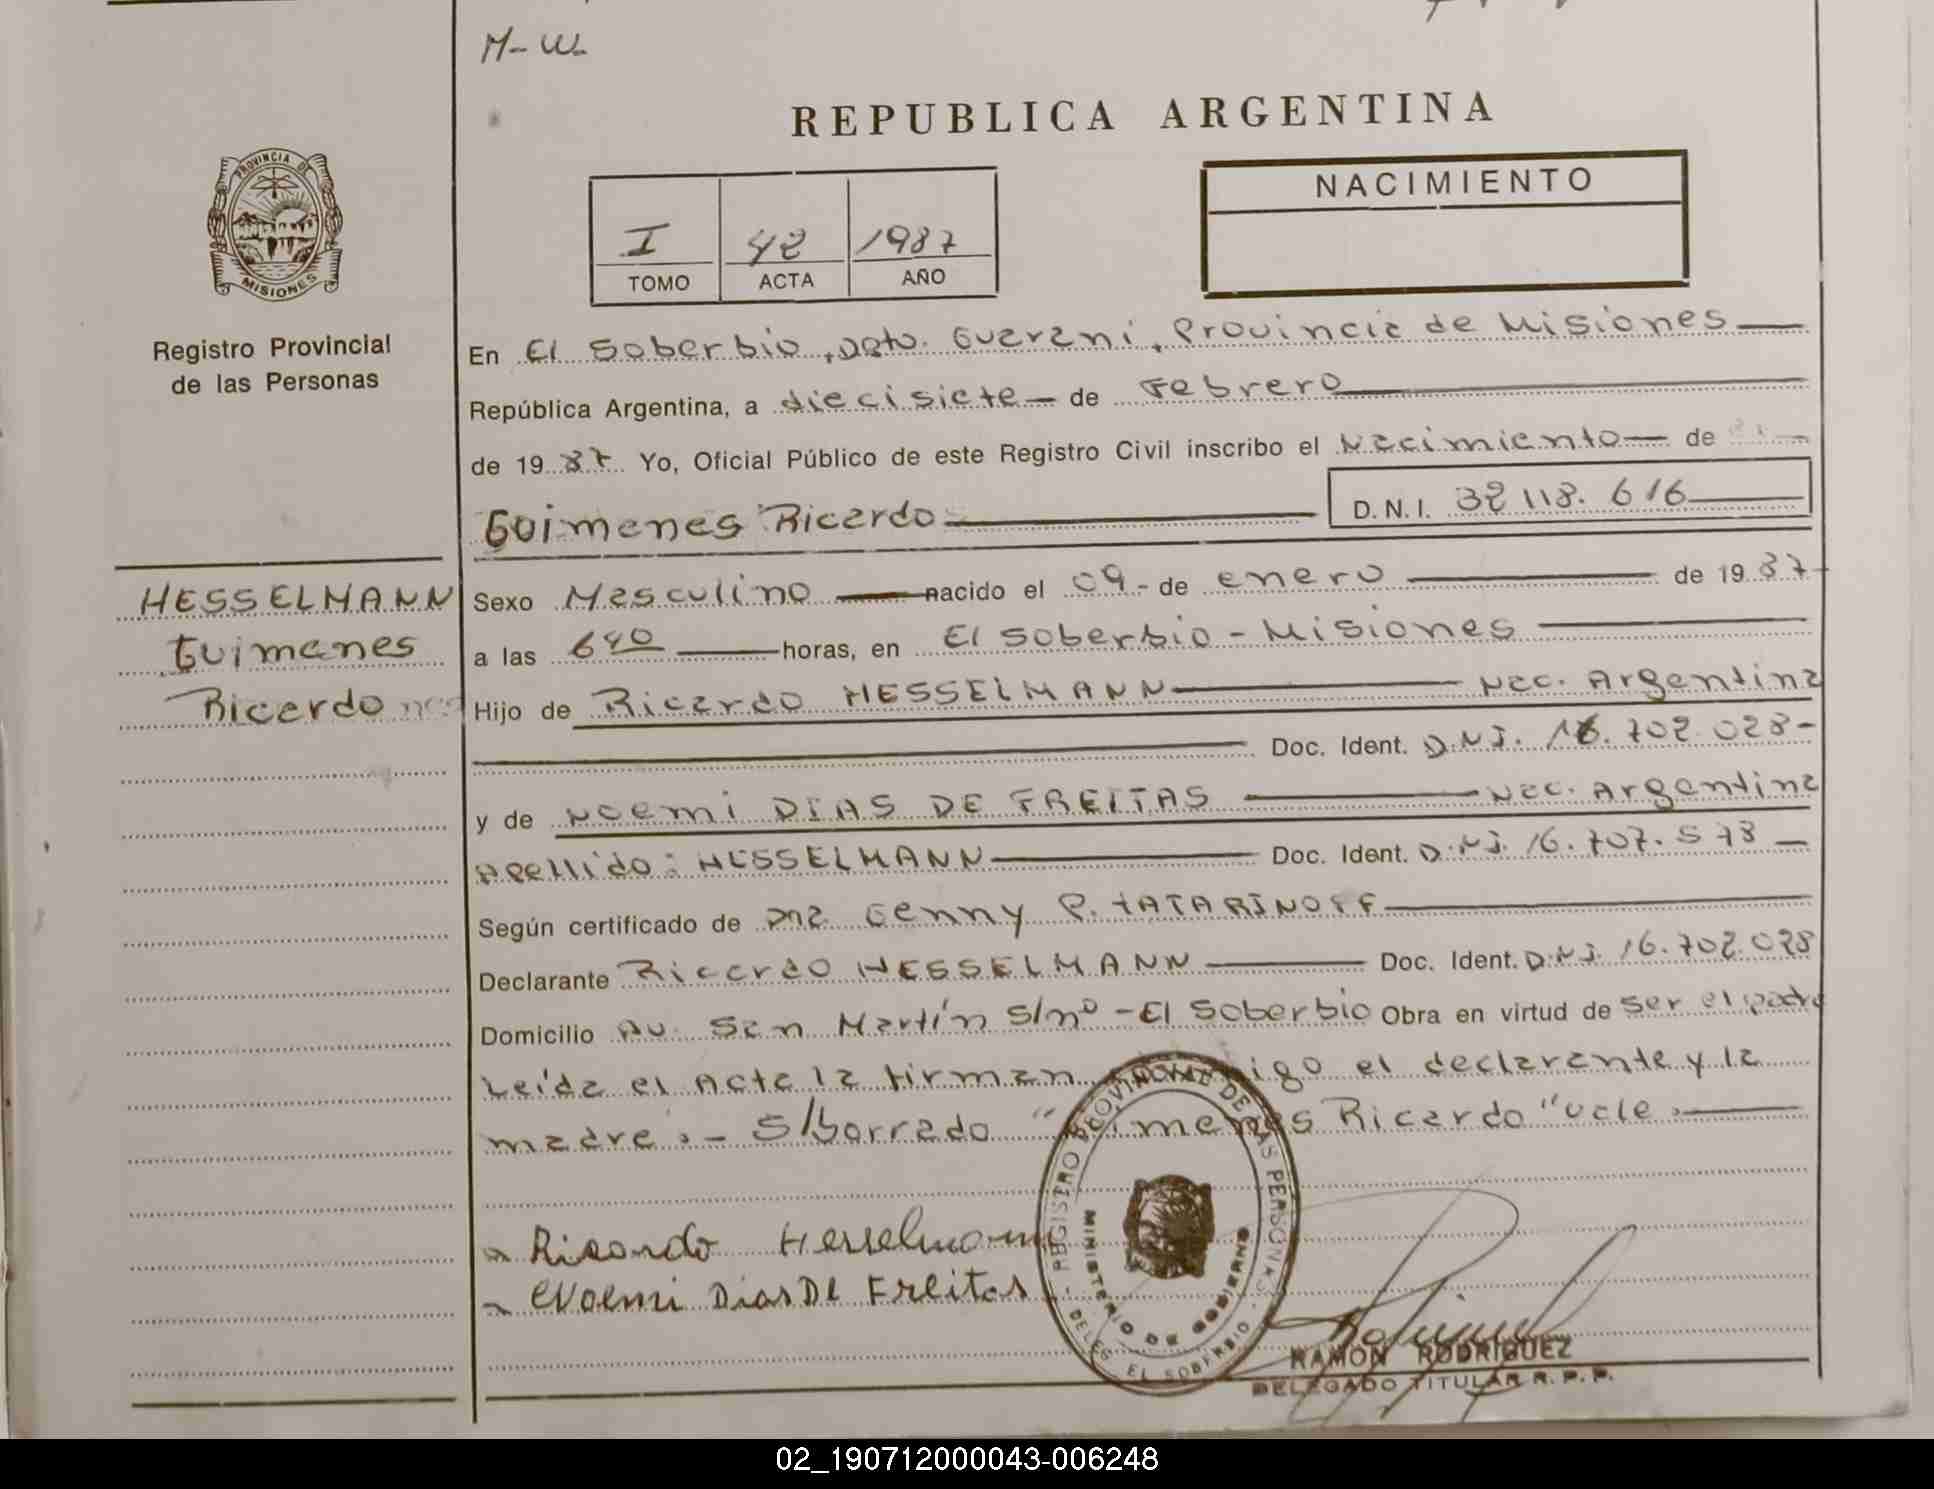 M-W.
REPUBLICA ARGENTINA
PROVINCIA DE
MISIONES
Registro Provincial
de las Personas
I 42 1987
TOMO ACTA AÑO
NACIMIENTO
En El Soberbio, Dpto. Guarani, Provincia de Misiones
República Argentina, a diecisiete de Febrero
de 1987 Yo, Oficial Público de este Registro Civil inscribo el Nacimiento de
Guimenes Ricardo D.N.I. 32 118. 616
HESSELMANN
Guimenes
Ricardo
Sexo Masculino nacido el 09 - de enero de 1987
a las 640 horas, en El Soberbio - Misiones
Hijo de Ricardo HESSELMANN Nac. Argentina
Doc. Ident. D.N.I. 16.702.028-
y de Noemi DIAS DE FREITAS Nac. Argentina
Apellido: HESSELMANN Doc. Ident. D.N.I. 16.707.578
Según certificado de Dra Genny P. TATARINOFF
Declarante Ricardo HESSELMANN Doc. Ident. D.N.I. 16.702.028
Domicilio Av. San Martín S/nº - El Soberbio Obra en virtud de ser el padre
Leída el Acta la firman el declarante y la
madre.- S/borrado Ricardo "vale.-
Ricardo Hesselmann
Noemi Dias De Freitas
REGISTRO PROVINCIAL DE LAS PERSONAS
MINISTERIO DE GOBIERNO
DELEG. EL SOBERBIO
RAMÓN RODRIGUEZ
DELEGADO TITULAR R.P.P.
02_190712000043-006248